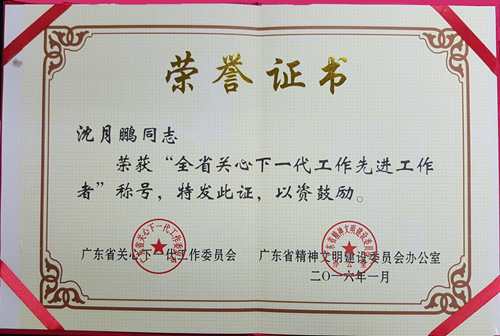 荣誉证书
沈月鹏同志
荣获“全省关心下一代工作先进工作
者”称号，特发此证，以资鼓励。
广东省关心下一代工作委员会
广东省精神文明建设委员会办公室
二〇一六年一月